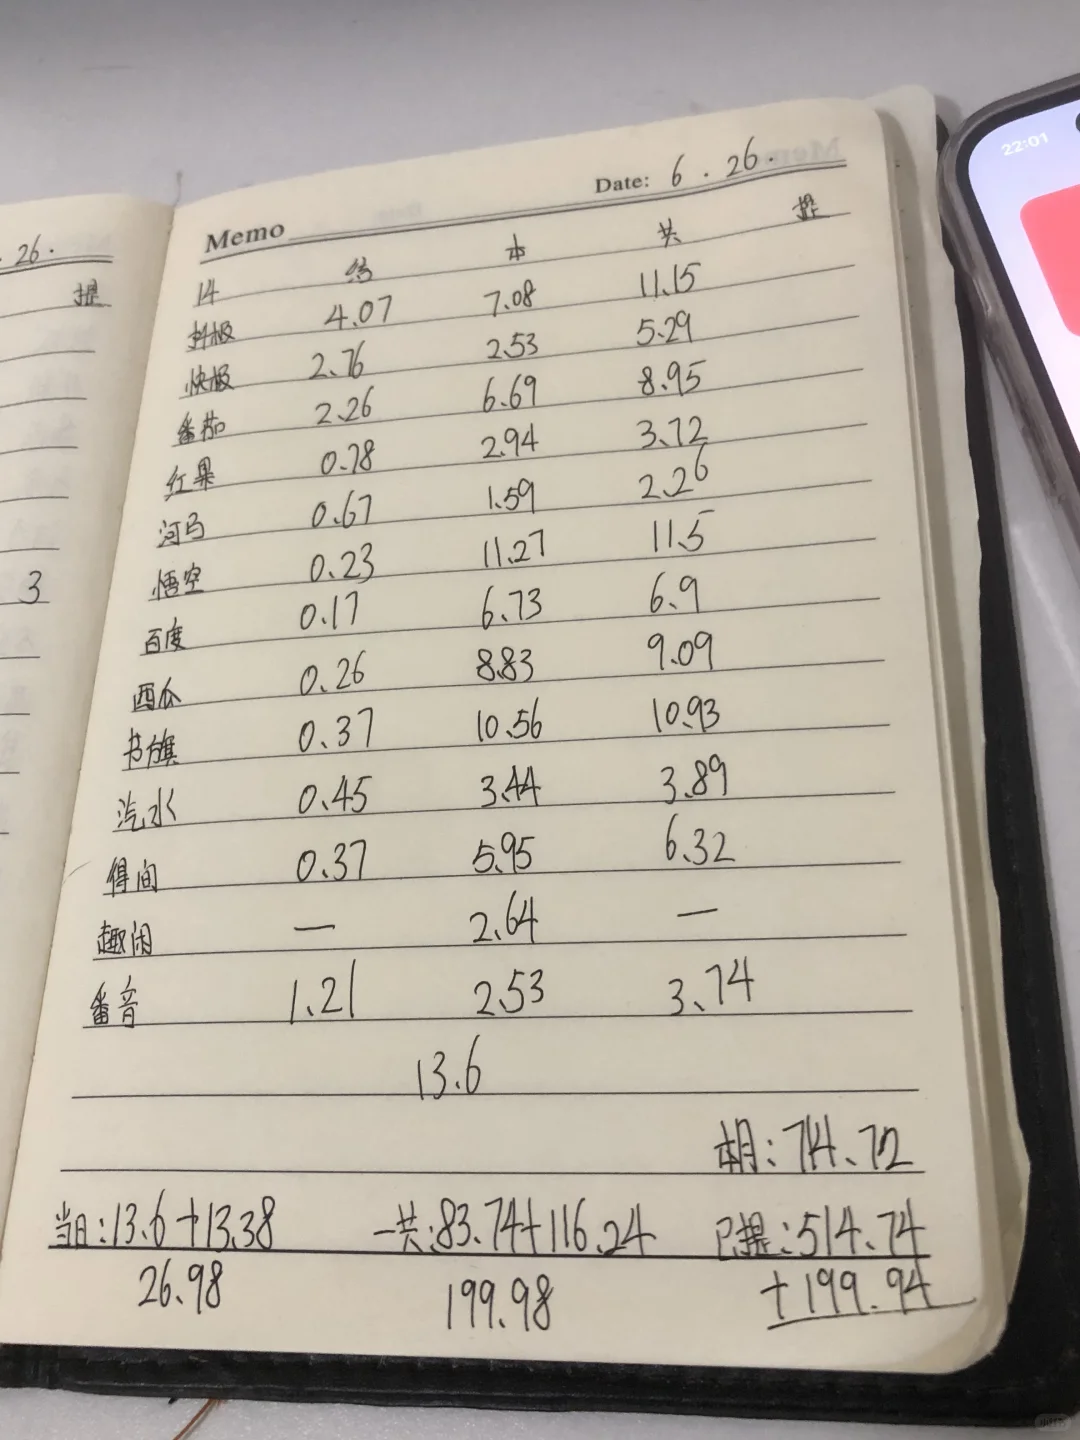 . 26.
提
3
Memo Date: 6 . 26.
14 结 本 共 提
抖极 4.07 7.08 11.15
快极 2.76 2.53 5.29
番茄 2.26 6.69 8.95
红果 0.78 2.94 3.72
河马 0.67 1.59 2.26
悟空 0.23 11.27 11.5
百度 0.17 6.73 6.9
西瓜 0.26 8.83 9.09
书旗 0.37 10.56 10.93
汽水 0.45 3.44 3.89
得间 0.37 5.95 6.32
趣闲 — 2.64 —
番音 1.21 2.53 3.74
13.6
本月:714.72
当日:13.6+13.38 一共:83.74+116.24 已提:514.74
26.98 199.98 +199.94
22:01